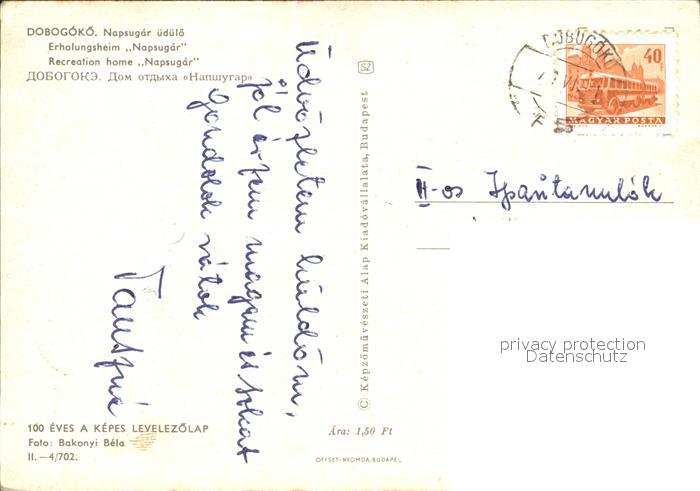 DOBOGÓKŐ. Napsugár üdülő
Erholungsheim „Napsugár"
Recreation home „Napsugár"
ДОБОГОКЭ. Дом отдыха «Напшугар»
Üdvözletem küldöm,
jól érzem magam és sokat
gondolok rátok
100 ÉVES A KÉPES LEVELEZŐLAP
Foto: Bakonyi Béla
II.—4/702.
Ára: 1,50 Ft
OFFSET-NYOMDA, BUDAPEST
SZ
© Képzőművészeti Alap Kiadóvállalata, Budapest
DOBOGÓKŐ
40
MAGYAR POSTA
II-os Ipari tanulók
privacy protection
Datenschutz